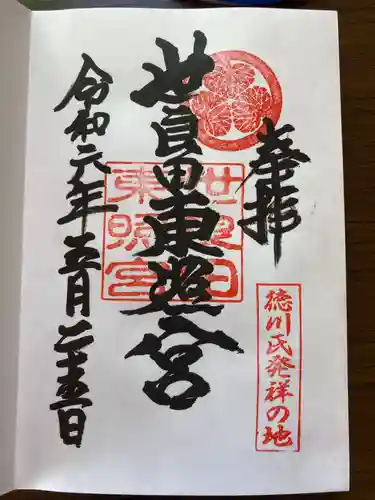 奉拝
徳川氏発祥の地
世良田東照宮
世良田
東照宮
令和六年五月二十五日